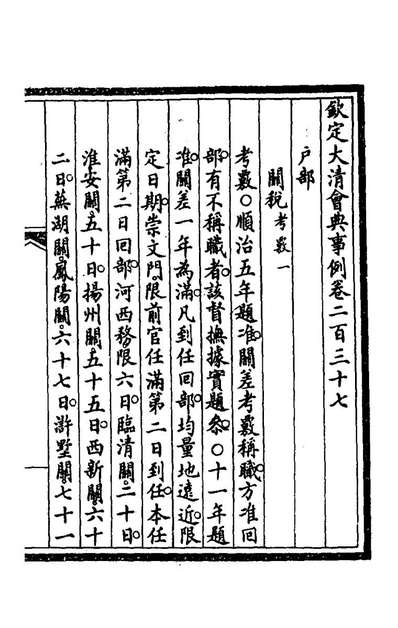 欽定大清會典事例卷二百三十七
戶部
關稅考覈一
考覈○順治五年題准關差考覈稱職方准回
部有不稱職者該督撫據實題參○十一年題
准關差一年為滿凡到任回部均量地遠近限
定日期崇文門限前官任滿第二日到任本任
滿第二日回部河西務限六日臨清關二十日
淮安關五十日揚州關五十五日西新關六十
二日蕪湖關鳳陽關六十七日滸墅關七十一